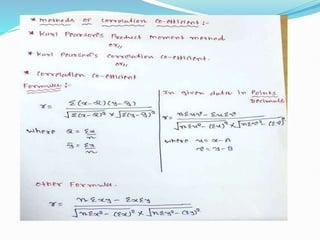 * Methods of Correlation Co-efficient :-
* Karl Pearson's Product Moment method
or,,
* Karl Pearson's correlation co-efficient.
or,,
* correlation co-efficient
Formula :-
r = Σ(x-x̄)(y-ȳ) / √Σ(x-x̄)² × √Σ(y-ȳ)²
where x̄ = Σx/n
ȳ = Σy/n
In given data in Points
Decimals
r = nΣuv - ΣuΣv / √nΣu² - (Σu)² × √nΣv² - (Σv)²
where u = x-A
v = y-B
Other Formula.
r = nΣxy - ΣxΣy / √nΣx² - (Σx)² × √nΣy² - (Σy)²